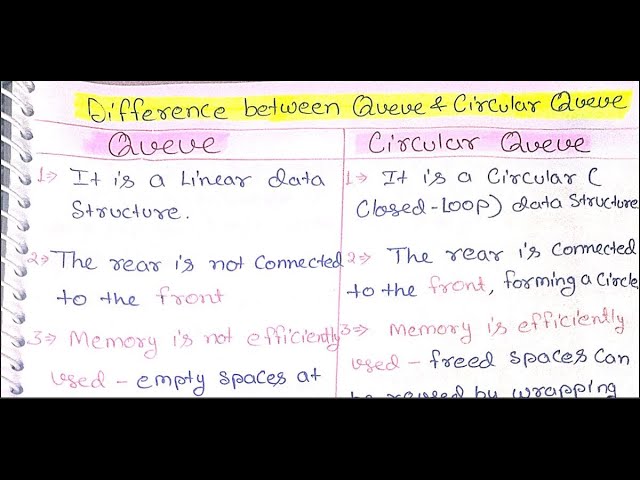 Difference between Queue & Circular Queue
Queue
1⇒ It is a Linear data
Structure.
2⇒ The rear is not Connected
to the front
3⇒ Memory is not efficiently
used – empty spaces at
Circular Queue
1⇒ It is a Circular (
Closed-Loop) data Structure
2⇒ The rear is Connected
to the front, forming a Circle
3⇒ Memory is efficiently
used – freed spaces Can
be reused by wrapping